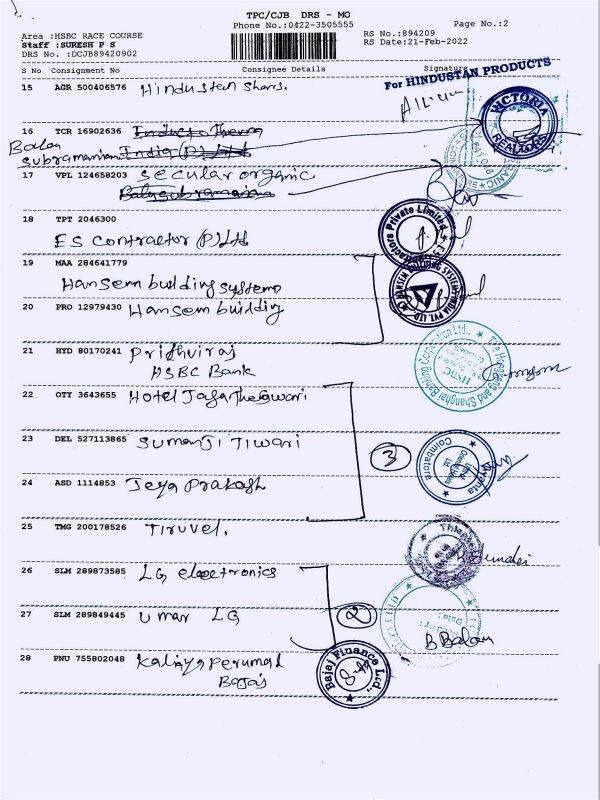 TPC/CJB DRS - MO
Phone No.:0422-3505555
Page No.:2
Area :HSBC RACE COURSE
Staff :SURESH P S
DRS No. :DCJB89420902
RS No.:894209
RS Date:21-Feb-2022
S No Consignment No Consignee Details Signature
For HINDUSTAN PRODUCTS
15 AGR 500406576 Hindustan
VICTORIA REALTORS
16 TCR 16902636
Balan
Subramanian India (P) Ltd
17 VPL 124658203 Secular organic
Balasubramanian
18 TPT 2046300
ES Contractor (P) Ltd
Contractors Private Limited
19 MAA 284641779
Hansem building systems
HANSEM BUILDING SYSTEMS INDIA PVT. LTD.
20 PRO 12979430 Hansem building
21 HYD 80170241 Pridhviraj
HSBC Bank
The Hongkong and Shanghai Banking Corporation Ltd.
HSBC
22 OTY 3643655 Hotel
23 DEL 527113865 Sumanji Tiwari
3
Coimbatore
24 ASD 1114853 Jeya Prakash
25 TMG 200178526 Tiruvel.
26 SLM 289873585 LG electronics
27 SLM 289849445 Umar LG
2
Date :
B Balan
28 PNU 755802048 Kaliya Perumal
Bajaj
Bajaj Finance Ltd.,